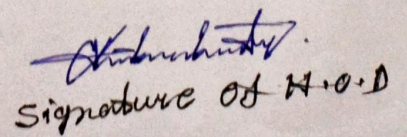 Signature of H.O.D